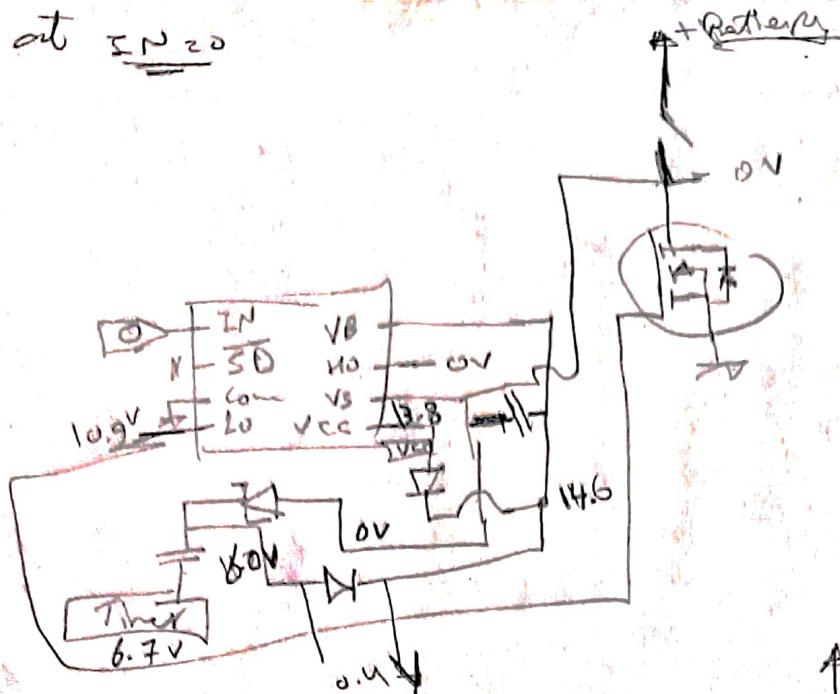 at IN=0
+ Battery
0V
0
IN
VB
SD
HO
0V
N
Com
VS
10.9V
LO
VCC
13.8
14.6
0V
Timer
6.7V
0.4